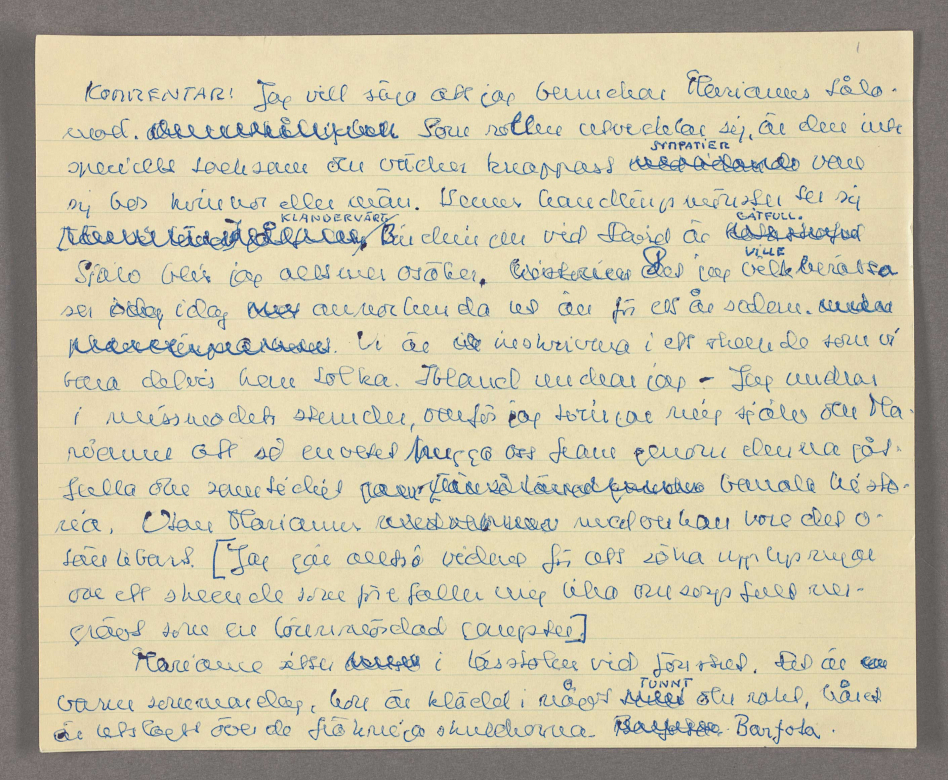 1
KOMMENTAR! Jag vill säga att jag beundrar Mariannes tåla-
mod. Som rollen utvecklar sig, är den inte
speciellt tacksam och väcker knappast SYMPATIER vare
sig hos kvinnor eller män. Hennes handlingsmönster ter sig
KLANDERVÄRT, Bindningen vid David är GÅTFULL.
Själv blir jag alltmer osäker. Det jag VILLE berätta
ser idag annorlunda ut än för ett år sedan.
Vi är inskrivna i ett skeende som vi
bara delvis kan tolka. Ibland undrar jag - Jag undrar
i missmodets stunder, varför jag tvingar mig själv och Ma-
rianne att så envetet hugga oss fram genom denna gåt-
fulla och samtidigt banala histo-
ria. Utan Mariannes medverkan vore det o-
tänkbart. [Jag går alltså vidare för att söka upplysningar
om ett skeende som förefaller mig lika omsorgsfullt ner-
grävt som en lönnmördad gangster.]
Marianne sitter i lässtolen vid fönstret. Det är en
varm sommardag, hon är klädd i något TUNNT och rakt, håret
är utslaget över de fräkniga skuldrorna. Barfota.